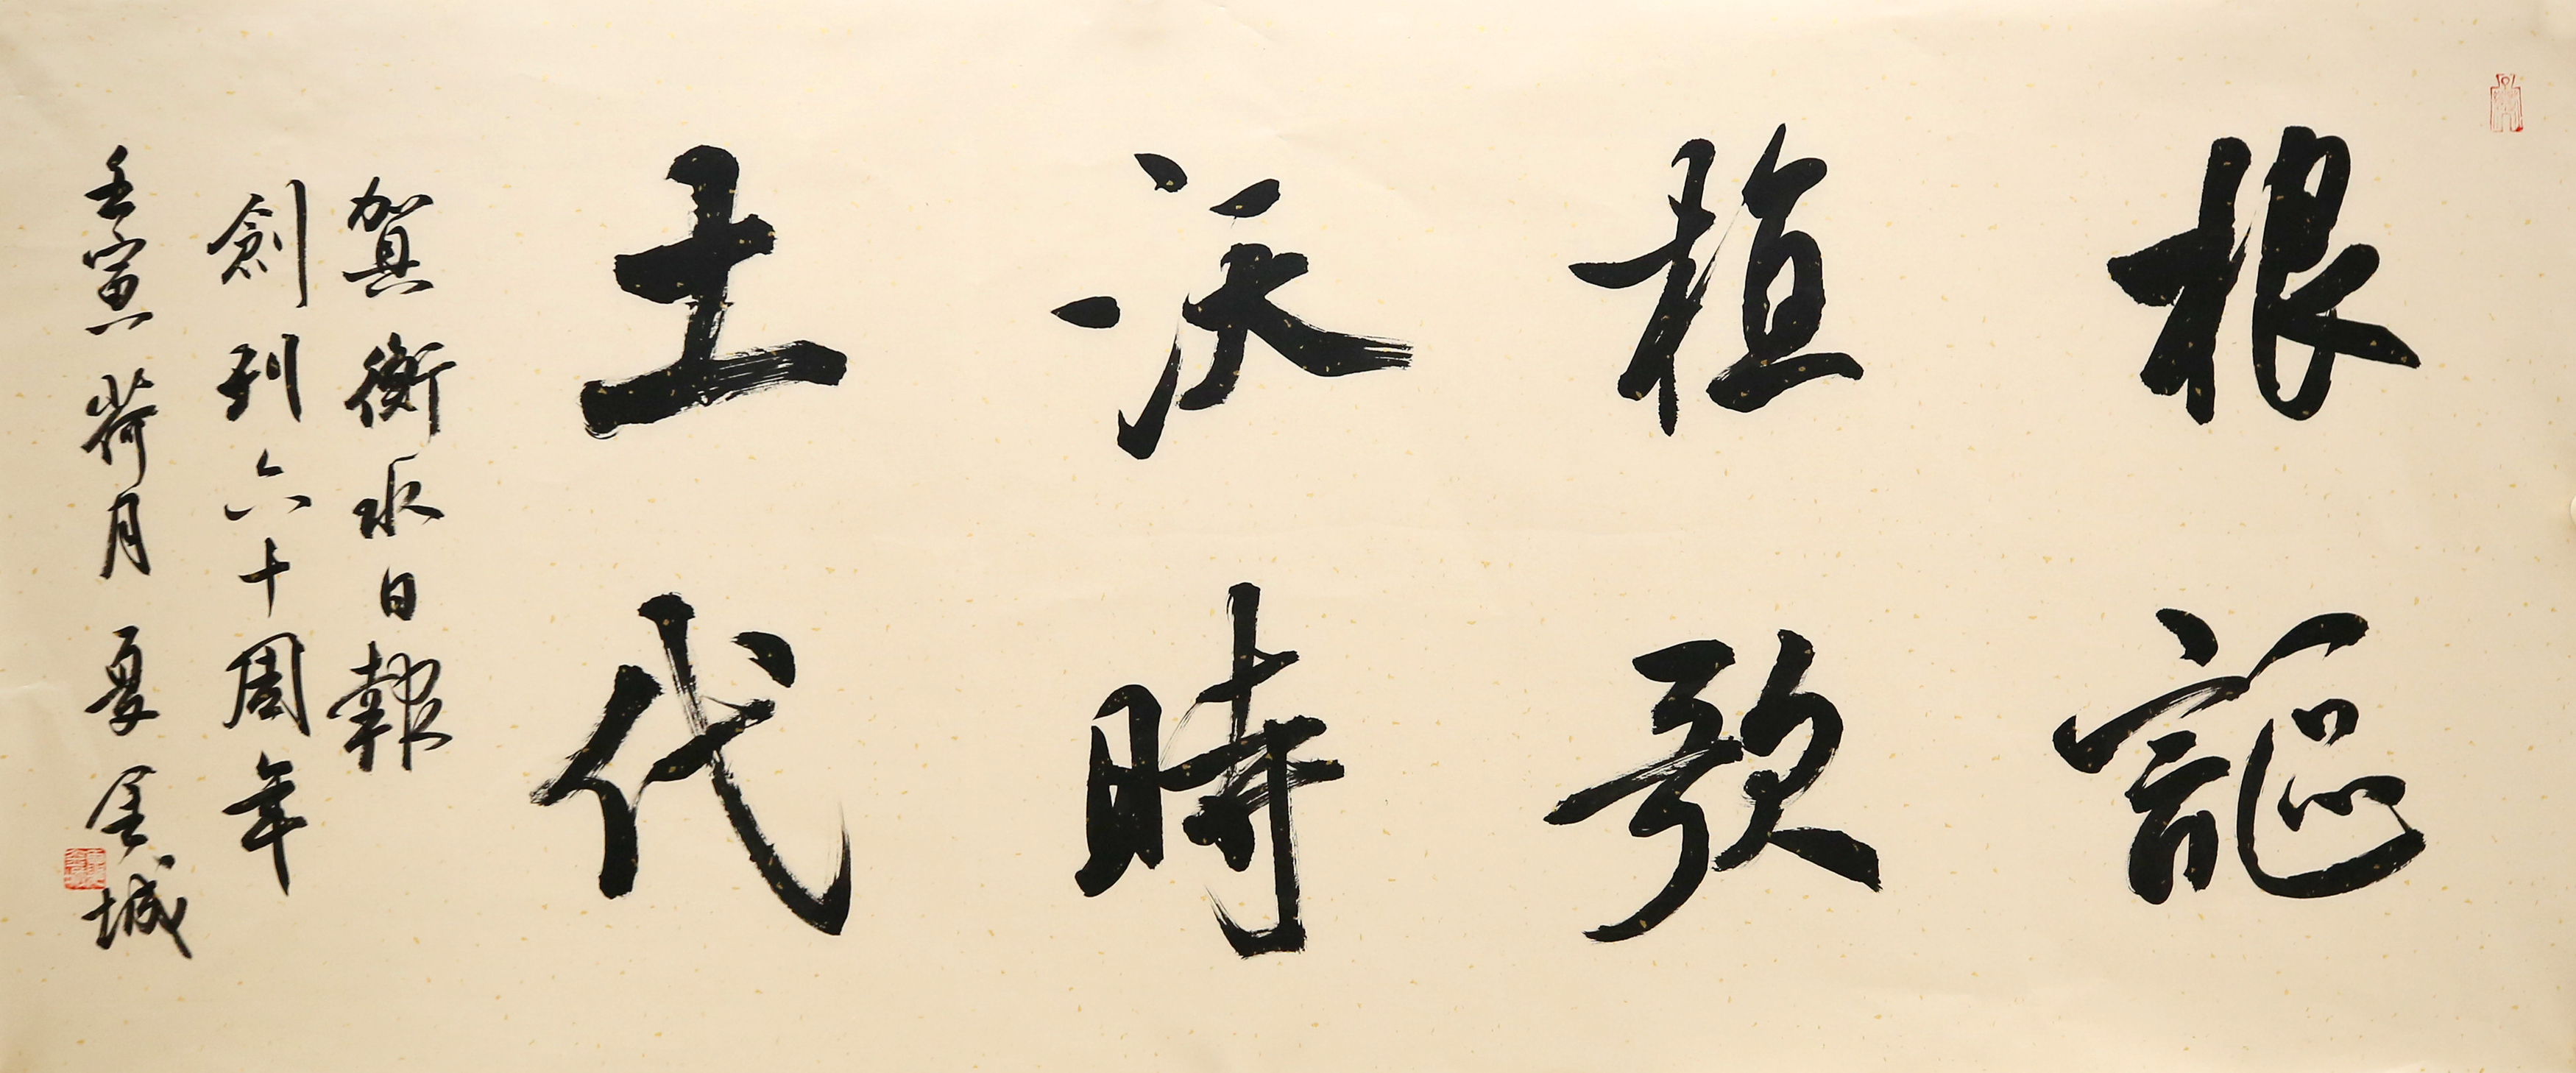 根植沃土
謳歌時代
賀衡水日報
創刊六十周年
壬寅荷月 夏金城